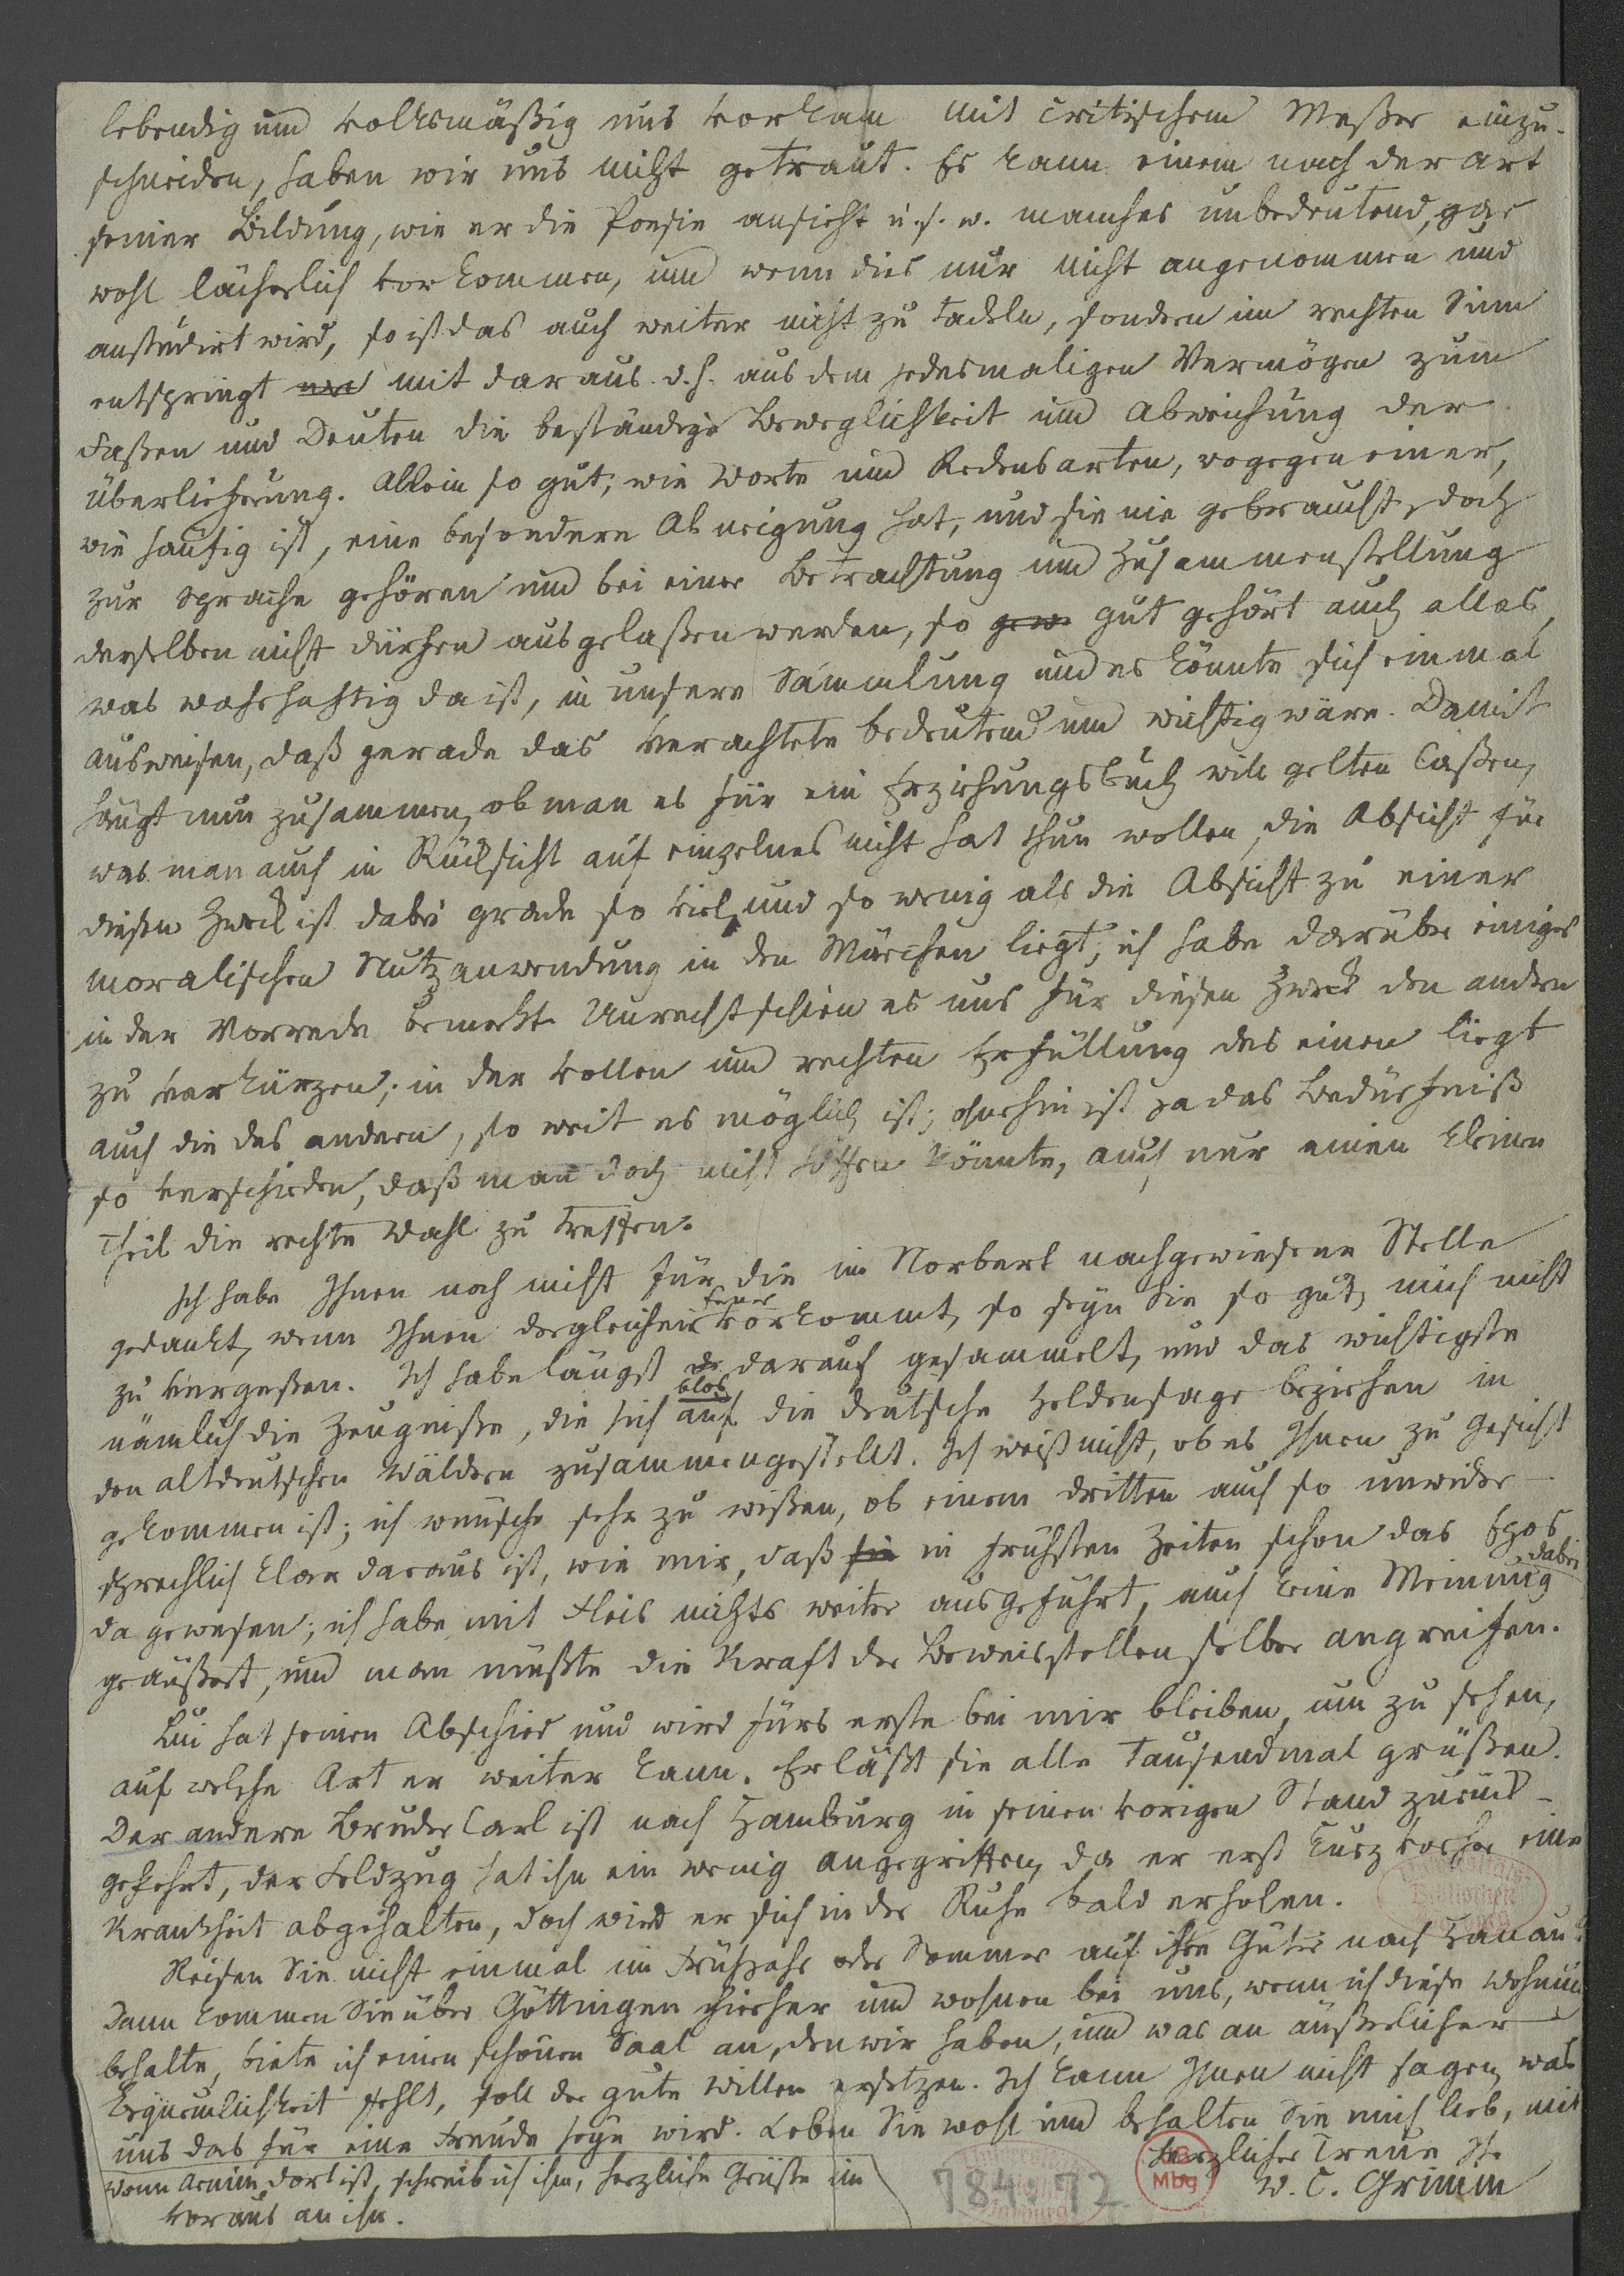 lebendig und volksmäßig uns vorkam mit critischem Meßer einzu-
schneiden, haben wir uns nicht getraut. Es kann einem nach der Art
seiner Bildung, wie er die Poesie ansieht u.s.w. manches unbedeutend, gar
wohl lächerlich vorkommen, und wenn dies nur nicht angenommen und
anstudirt wird, so ist das auch weiter nicht zu tadeln, sondern im rechten Sinn
entspringt mit daraus d.h. aus dem jedesmaligen Vermögen zum
Faßen und Deuten die beständige Beweglichkeit und Abweichung der
Überlieferung. Allein so gut, wie Worte und Redensarten, wogegen einer,
wie häufig ist, eine besondere Abneigung hat, und sie nie gebraucht, doch
zur Sprache gehören und bei einer Betrachtung und Zusammenstellung
derselben nicht dürfen ausgelaßen werden, so gut gehört auch alles,
was wahrhaftig da ist, in unsere Sammlung und es könnte sich einmal
ausweisen, daß gerade das Verachtete bedeutend und wichtig wäre. Damit
hängt nun zusammen, ob man es für ein Erziehungsbuch will gelten laßen,
was man auch in Rücksicht auf einzelnes nicht hat thun wollen, die Absicht für
diesen Zweck ist dabei grade so viel und so wenig als die Absicht zu einer
moralischen Nutzanwendung in den Märchen liegt; ich habe darüber einiges
in der Vorrede bemerkt. Unrecht schien es uns für diesen Zweck den andern
zu verkürzen; in der vollen und rechten Erfüllung des einen liegt
auch die des andern, so weit es möglich ist; ohnehin ist ja das Bedürfniß
so verschieden, daß man doch nicht hoffen könnte, auch nur einen kleinen
Theil die rechte Wahl zu treffen.
Ich habe Ihnen noch nicht für die im Norbert nachgewiesene Stelle
gedankt, wenn Ihnen dergleichen ferner vorkommt, so seyn Sie so gut, mich nicht
zu vergeßen. Ich habe längst darauf gesammelt, und das wichtigste
nämlich die Zeugniße, die sich blos auf die deutsche Heldensage beziehen in
den altdeutschen Wäldern zusammengestellt. Ich weiß nicht, ob es Ihnen zu Gesicht
gekommen ist; ich wünsche sehr zu wißen, ob einem dritten auch so unwider-
sprechlich klar daraus ist, wie mir, daß in frühsten Zeiten schon das Epos
da gewesen; ich habe mit Fleis nichts weiter ausgeführt, auch keine Meinung dabei
geäußert, und man müßte die Kraft der Beweisstellen selber angreifen.
Lui hat seinen Abschied und wird fürs erste bei mir bleiben, um zu sehen,
auf welche Art er weiter kann. Er läßt sie alle tausendmal grüßen.
Der andere Bruder Carl ist nach Hamburg in seinen vorigen Stand zurück-
gekehrt, der Feldzug hat ihn ein wenig angegriffen, da er erst kurz vorher eine
Krankheit abgehalten, doch wird er sich in der Ruhe bald erholen.
Reisen Sie nicht einmal im Frühjahr oder Sommer auf ihre Güter nach Hanau?
Dann kommen Sie über Göttingen hierher und wohnen bei uns, wenn ich diese Wohnung
behalte, biete ich einen schönen Saal an, den wir haben, und was an äußerlicher
Bequemlichkeit fehlt, soll der gute Willen ersetzen. Ich kann Ihnen nicht sagen, was
uns das für eine Freude seyn wird. Leben Sie wohl und behalten Sie mich lieb, mit
herzlicher Treue Ihr
W. C. Grimm
Wenn Arnim dort ist, schreib ich ihm, herzliche Grüße im
voraus an ihn.
784. 72
UB
Mbg
Universitäts-
Bibliothek
Marburg